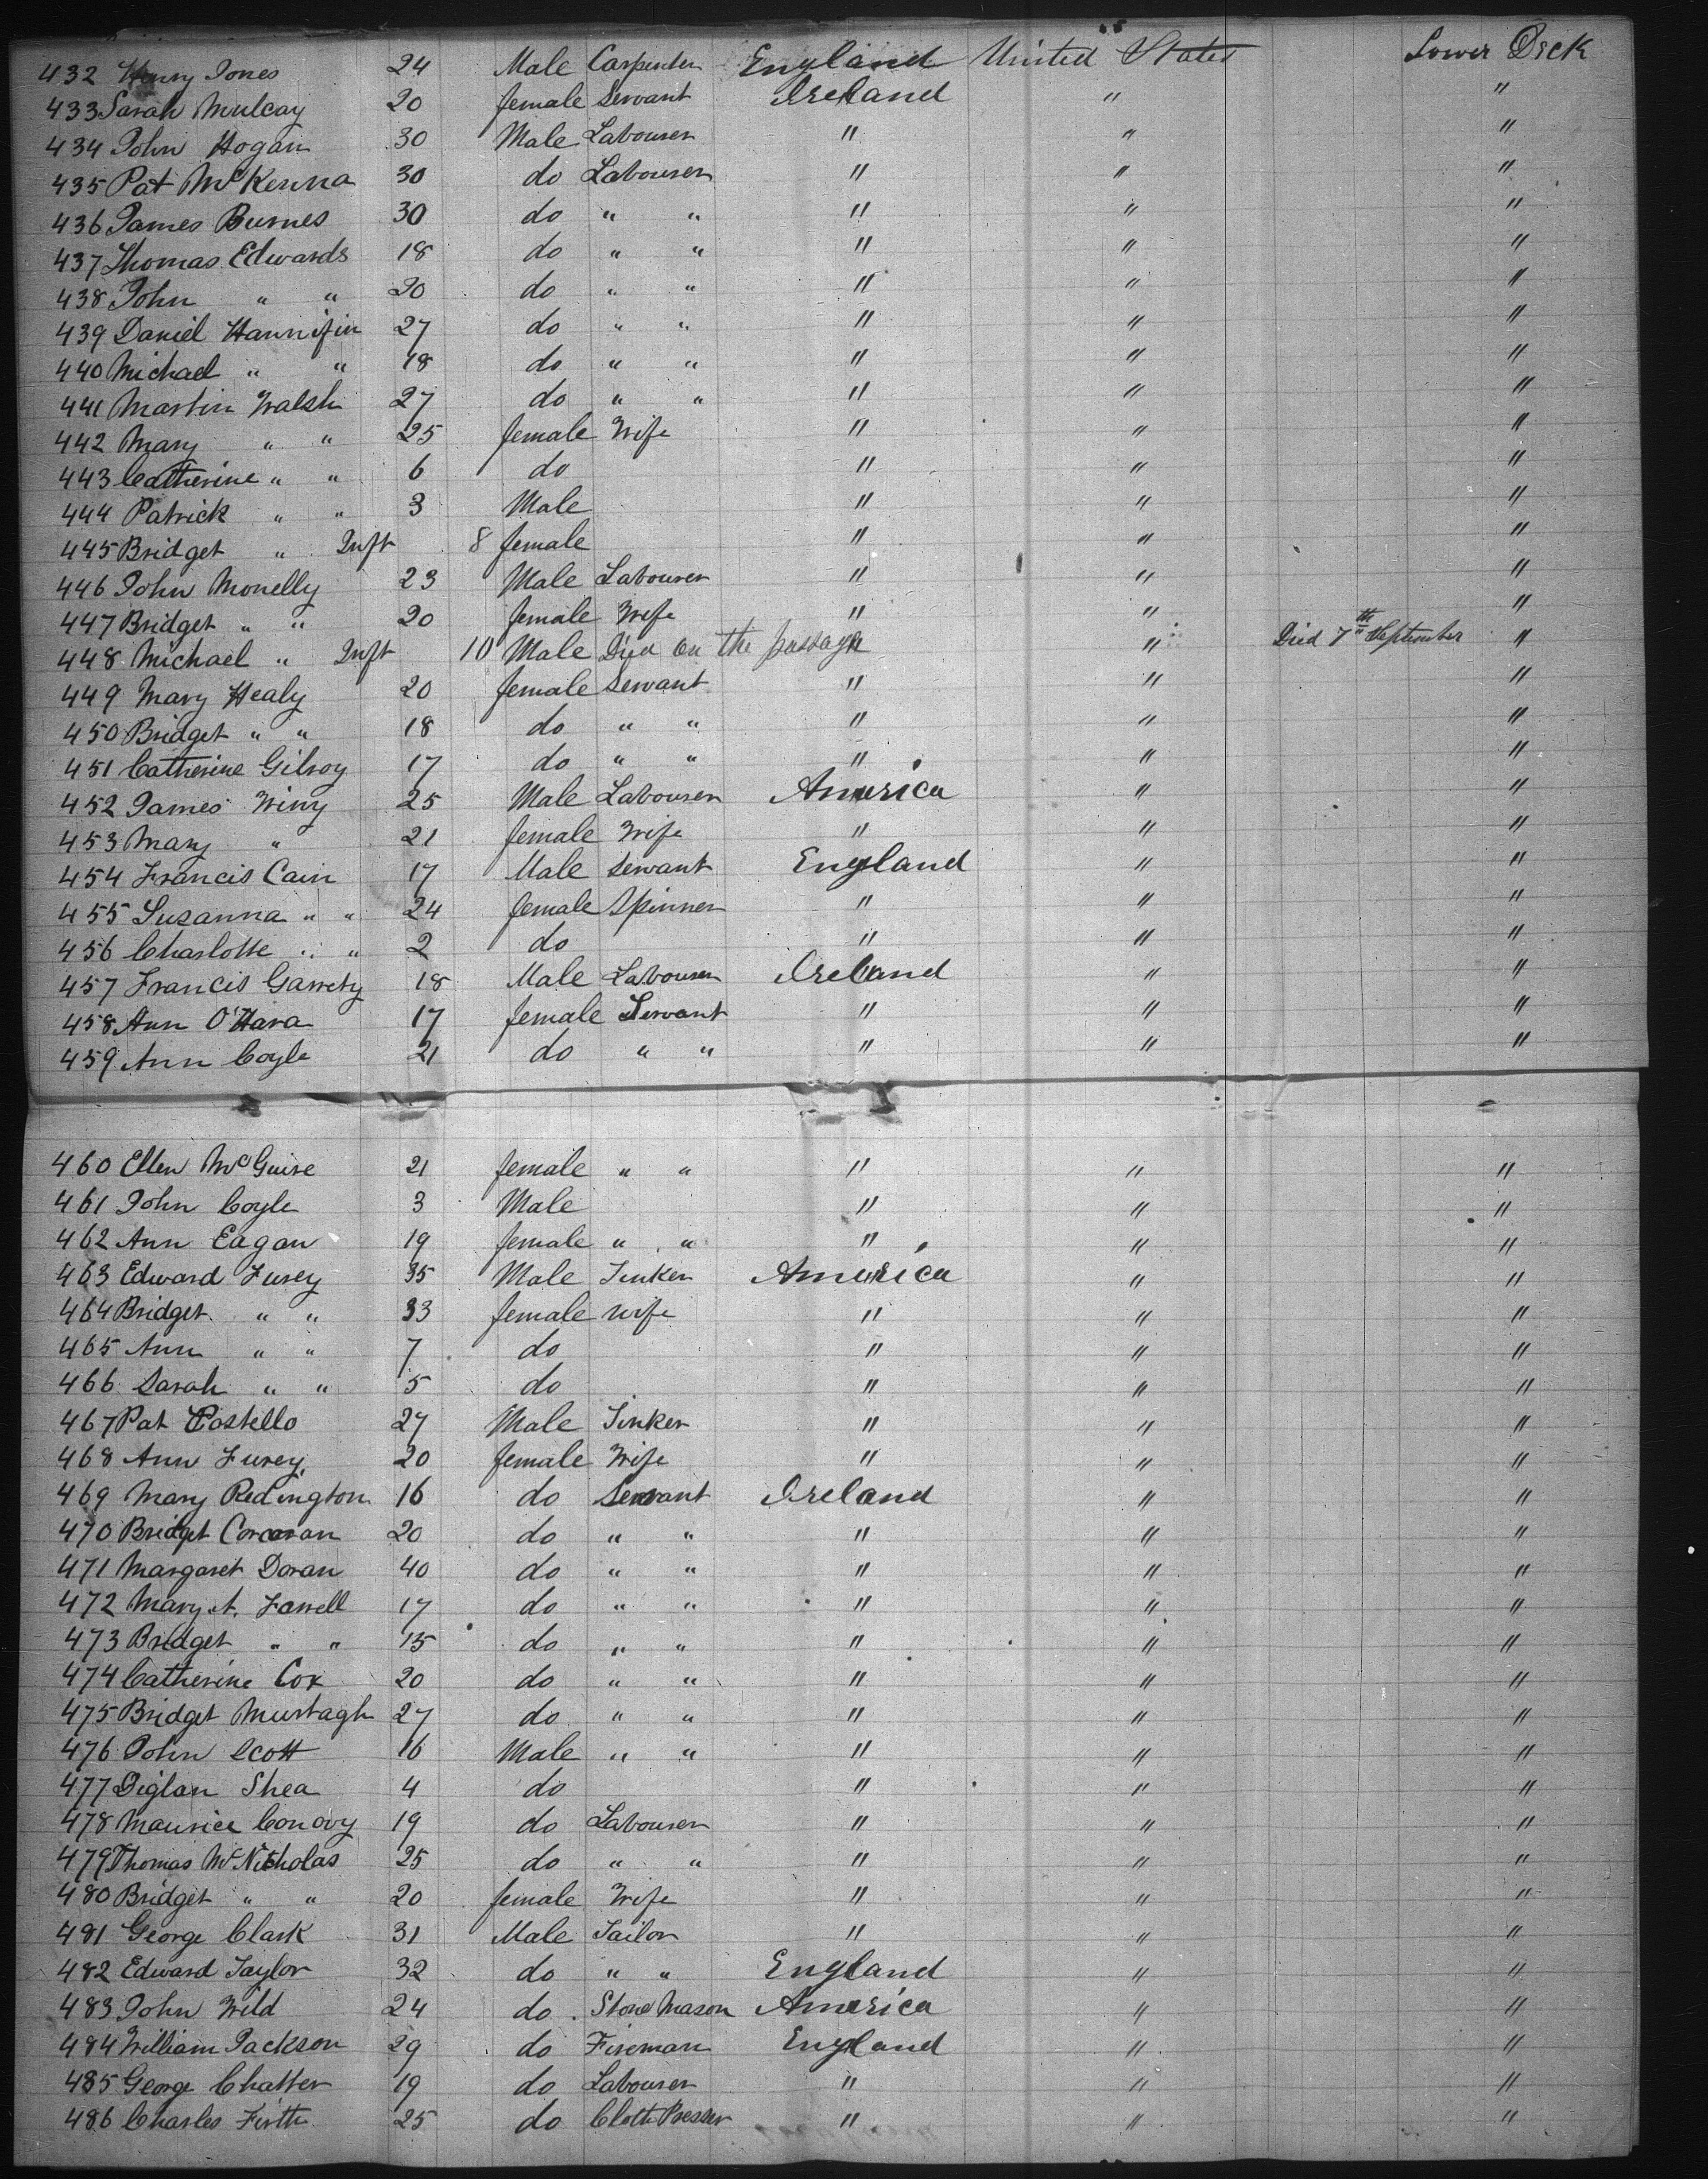 432 Henry Jones 24 Male Carpenter England United States Lower Deck
433 Sarah Mulcay 20 female Servant Ireland " "
434 John Hogan 30 Male Labourer " " "
435 Pat McKenna 30 do Labourer " " "
436 James Burnes 30 do " " " " "
437 Thomas Edwards 18 do " " " " "
438 John " " 20 do " " " " "
439 Daniel Hannifin 27 do " " " " "
440 Michael " " 18 do " " " " "
441 Martin Walsh 27 do " " " " "
442 Mary " " 25 female Wife " " "
443 Catherine " " 6 do " " "
444 Patrick " " 3 Male " " "
445 Bridget " Inft 8 female " " "
446 John Monelly 23 Male Labourer " " "
447 Bridget " " 20 female Wife " " "
448 Michael " Inft 10 Male Died on the passage " " Died 7th September "
449 Mary Healy 20 female Servant " " "
450 Bridget " " 18 do " " " " "
451 Catherine Gilroy 17 do " " " " "
452 James Winy 25 Male Labourer America " "
453 Mary " 21 female Wife " " "
454 Francis Cain 17 Male Servant England " "
455 Suzanna " " 24 female Spinner " " "
456 Charlotte " " 2 do " " "
457 Francis Garrety 18 Male Labourer Ireland " "
458 Ann O'Hara 17 female Servant " " "
459 Ann Coyle 21 do " " " " "
460 Ellen McGuire 21 female " " " " "
461 John Coyle 3 Male " " "
462 Ann Eagan 19 female " " " " "
463 Edward Furey 35 Male Tinker America " "
464 Bridget " " 33 female wife " " "
465 Ann " " 7 do " " "
466 Sarah " " 5 do " " "
467 Pat Costello 27 Male Tinker " " "
468 Ann Furey 20 female Wife " " "
469 Mary Redington 16 do Servant Ireland " "
470 Bridget Corcoran 20 do " " " " "
471 Margaret Doran 40 do " " " " "
472 Mary A. Farrell 17 do " " " " "
473 Bridget " " 15 do " " " " "
474 Catherine Cox 20 do " " " " "
475 Bridget Murtagh 27 do " " " " "
476 John Scott 16 Male " " " " "
477 Diglan Shea 4 do " " "
478 Maurice Conovy 19 do Labourer " " "
479 Thomas McNicholas 25 do " " " " "
480 Bridget " " 20 female Wife " " "
481 George Clark 31 Male Tailor " " "
482 Edward Taylor 32 do " " England " "
483 John Wild 24 do Stone Mason America " "
484 William Jackson 29 do Fireman England " "
485 George Chatter 19 do Labourer " " "
486 Charles Firth 25 do Cloth Presser " " "